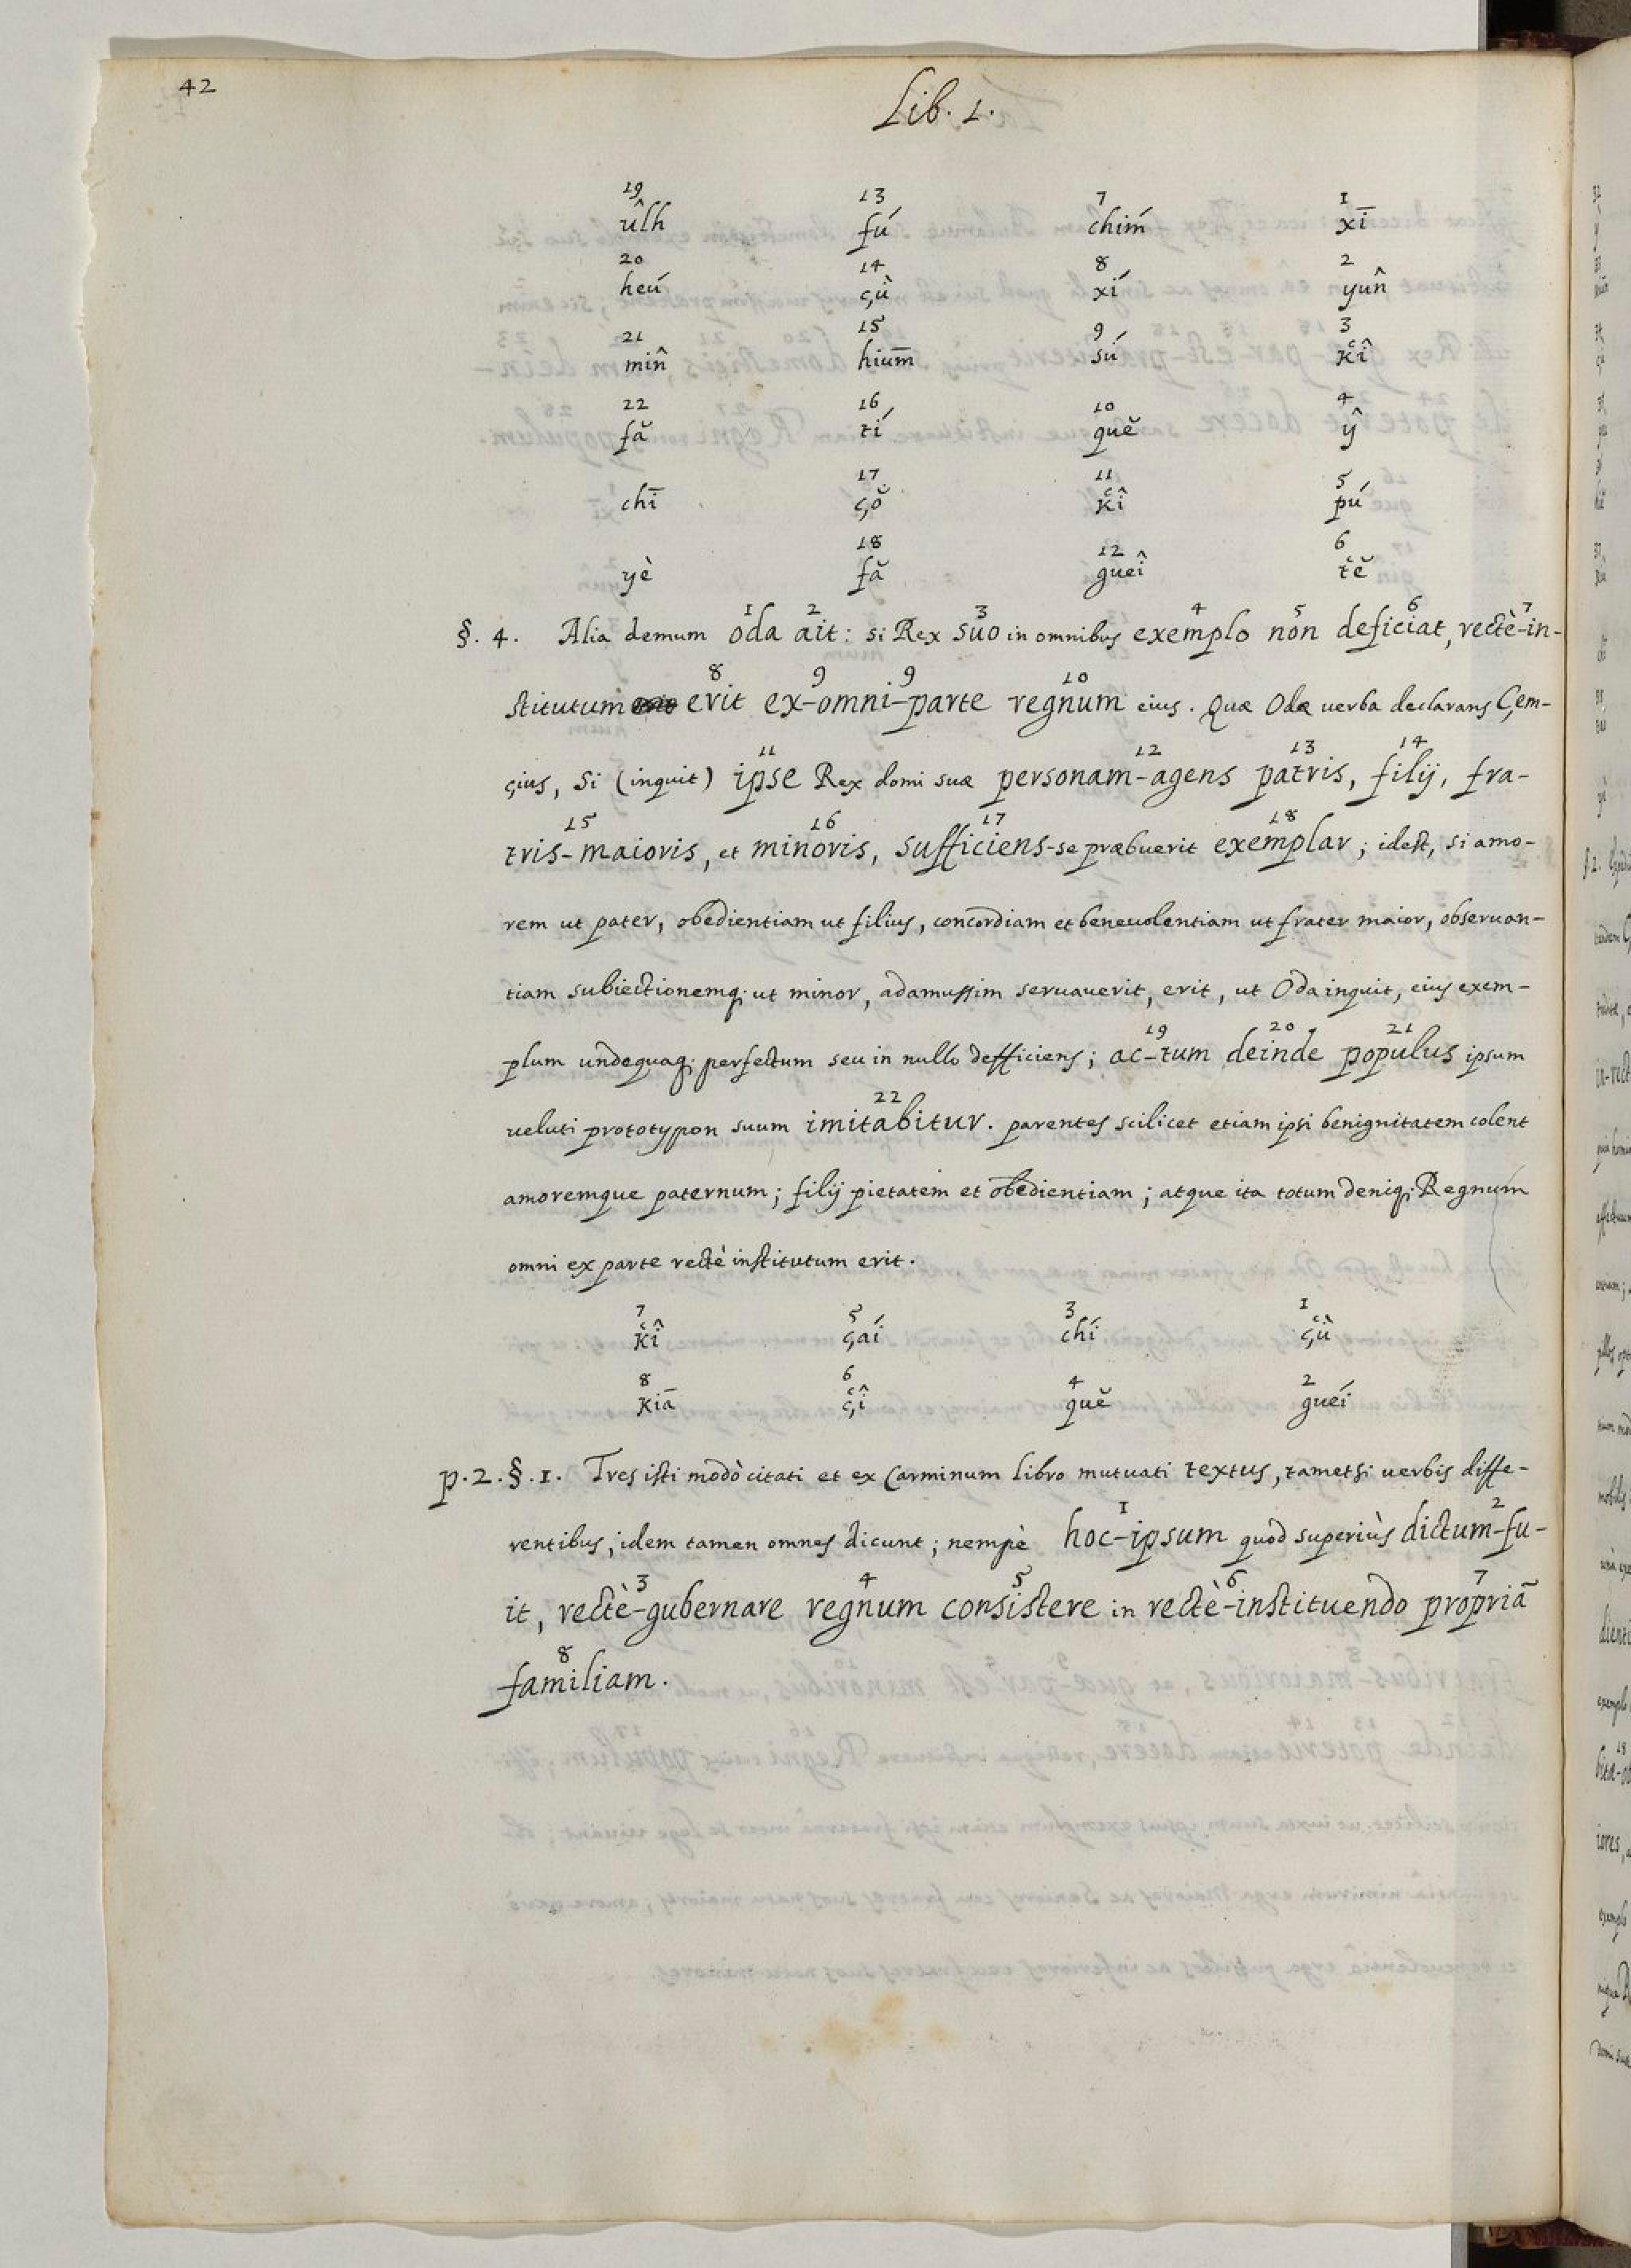 42
Lib. 1.
19 13 7 1
ûlh fú chiḿ xī
20 14 8 2
heú çù xí yun̂
21 15 9 3
min̂ hium̄ sú kî
22 16 10 4
fă tí quĕ ŷ
17 11 5
chī çŏ kî pú
18 12 6
yè fă gueî tĕ
1 2 3 4 5 6 7
§. 4. Alia demum oda ait: si Rex suo in omnibus exemplo non deficiat, rectè-in-
8 9 9 10
stitutum erit ex-omni-parte regnum eius. Quæ Odæ uerba declarans Çem-
11 12 13 14
çius, Si (inquit) ipse Rex domi suæ personam-agens patris, filij, fra-
15 16 17 18
tris-maioris, et minoris, sufficiens-se præbuerit exemplar; idest, si amo-
rem ut pater, obedientiam ut filius, concordiam et beneuolentiam ut frater maior, obseruan-
tiam subiectionemq; ut minor, adamussim seruauerit, erit, ut Oda inquit, eius exem-
19 20 21
plum undequaq; perfectum seu in nullo defficiens; ac-tum deinde populus ipsum
22
ueluti prototypon suum imitabitur. parentes scilicet etiam ipsi benignitatem colent
amoremque paternum; filij pietatem et obedientiam; atque ita totum deniq; Regnum
omni ex parte rectè institutum erit.
7 5 3 1
kî çaí chí çù
8 6 4 2
kiā çî quĕ gueí
p. 2. §. 1. Tres isti modò citati et ex Carminum libro mutuati textus, tametsi uerbis diffe-
1 2
rentibus, idem tamen omnes dicunt; nempè hoc-ipsum quod superiùs dictum-fu-
3 4 5 6 7
it, rectè-gubernare regnum consistere in rectè-instituendo propriā
8
familiam.